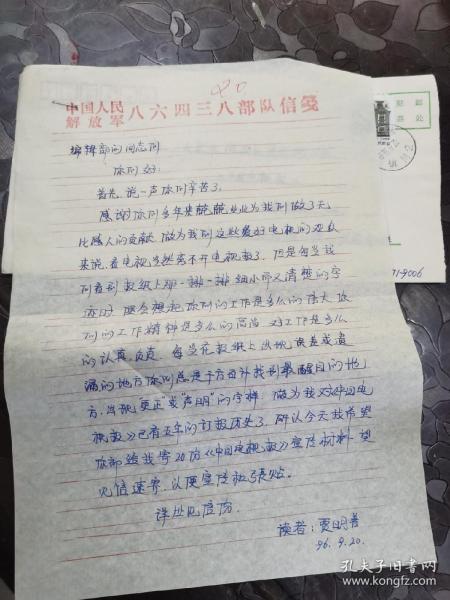 中国人民
解放军
八六四三八部队信笺
编辑部的同志们
你们好:
首先,说一声你们辛苦了。
感谢你们多年来兢兢业业为我们做了无
比感人的贡献,做为我们这些爱好电视的观众
来说,看电视当然离不开电视报了,但是每当我
们看到报纸上那一排一排细小而又清楚的字
迹时,便会想起你们的工作是多么的伟大,你
们的工作精神是多么的高尚,对工作是多么
的认真,负责,每当在报纸上出现误差或遗
漏的地方你们总是千方百计找到最醒目的地
方,出现"更正"或"声明"的字样,做为我对《中国电
视报》已有五年的订报历史了,所以今天我希望
你部给我寄20份《中国电视报》宣传材料,望
见信速寄,以便宣传板张贴。
详址见信商
读者:贾明善
96.9.20.
71-9006
孔夫子旧书网
www.kongfz.com